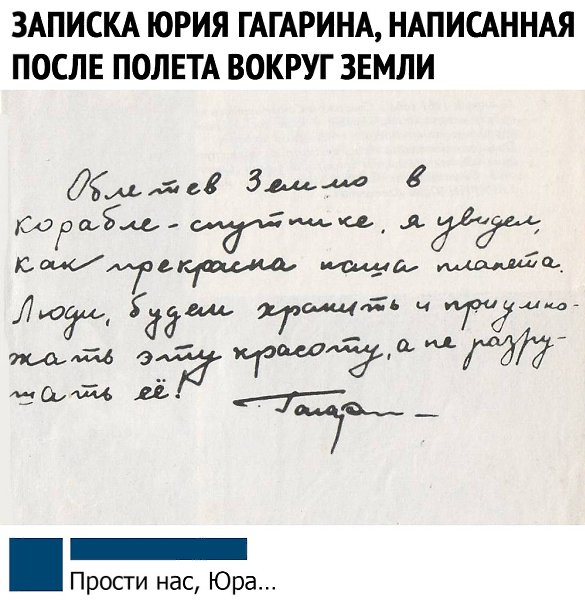 ЗАПИСКА ЮРИЯ ГАГАРИНА, НАПИСАННАЯ
ПОСЛЕ ПОЛЕТА ВОКРУГ ЗЕМЛИ
Облетев Землю в
корабле-спутнике, я увидел,
как прекрасна наша планета.
Люди, будем хранить и приумно-
жать эту красоту, а не разру-
шать её!
Гагарин
Прости нас, Юра...